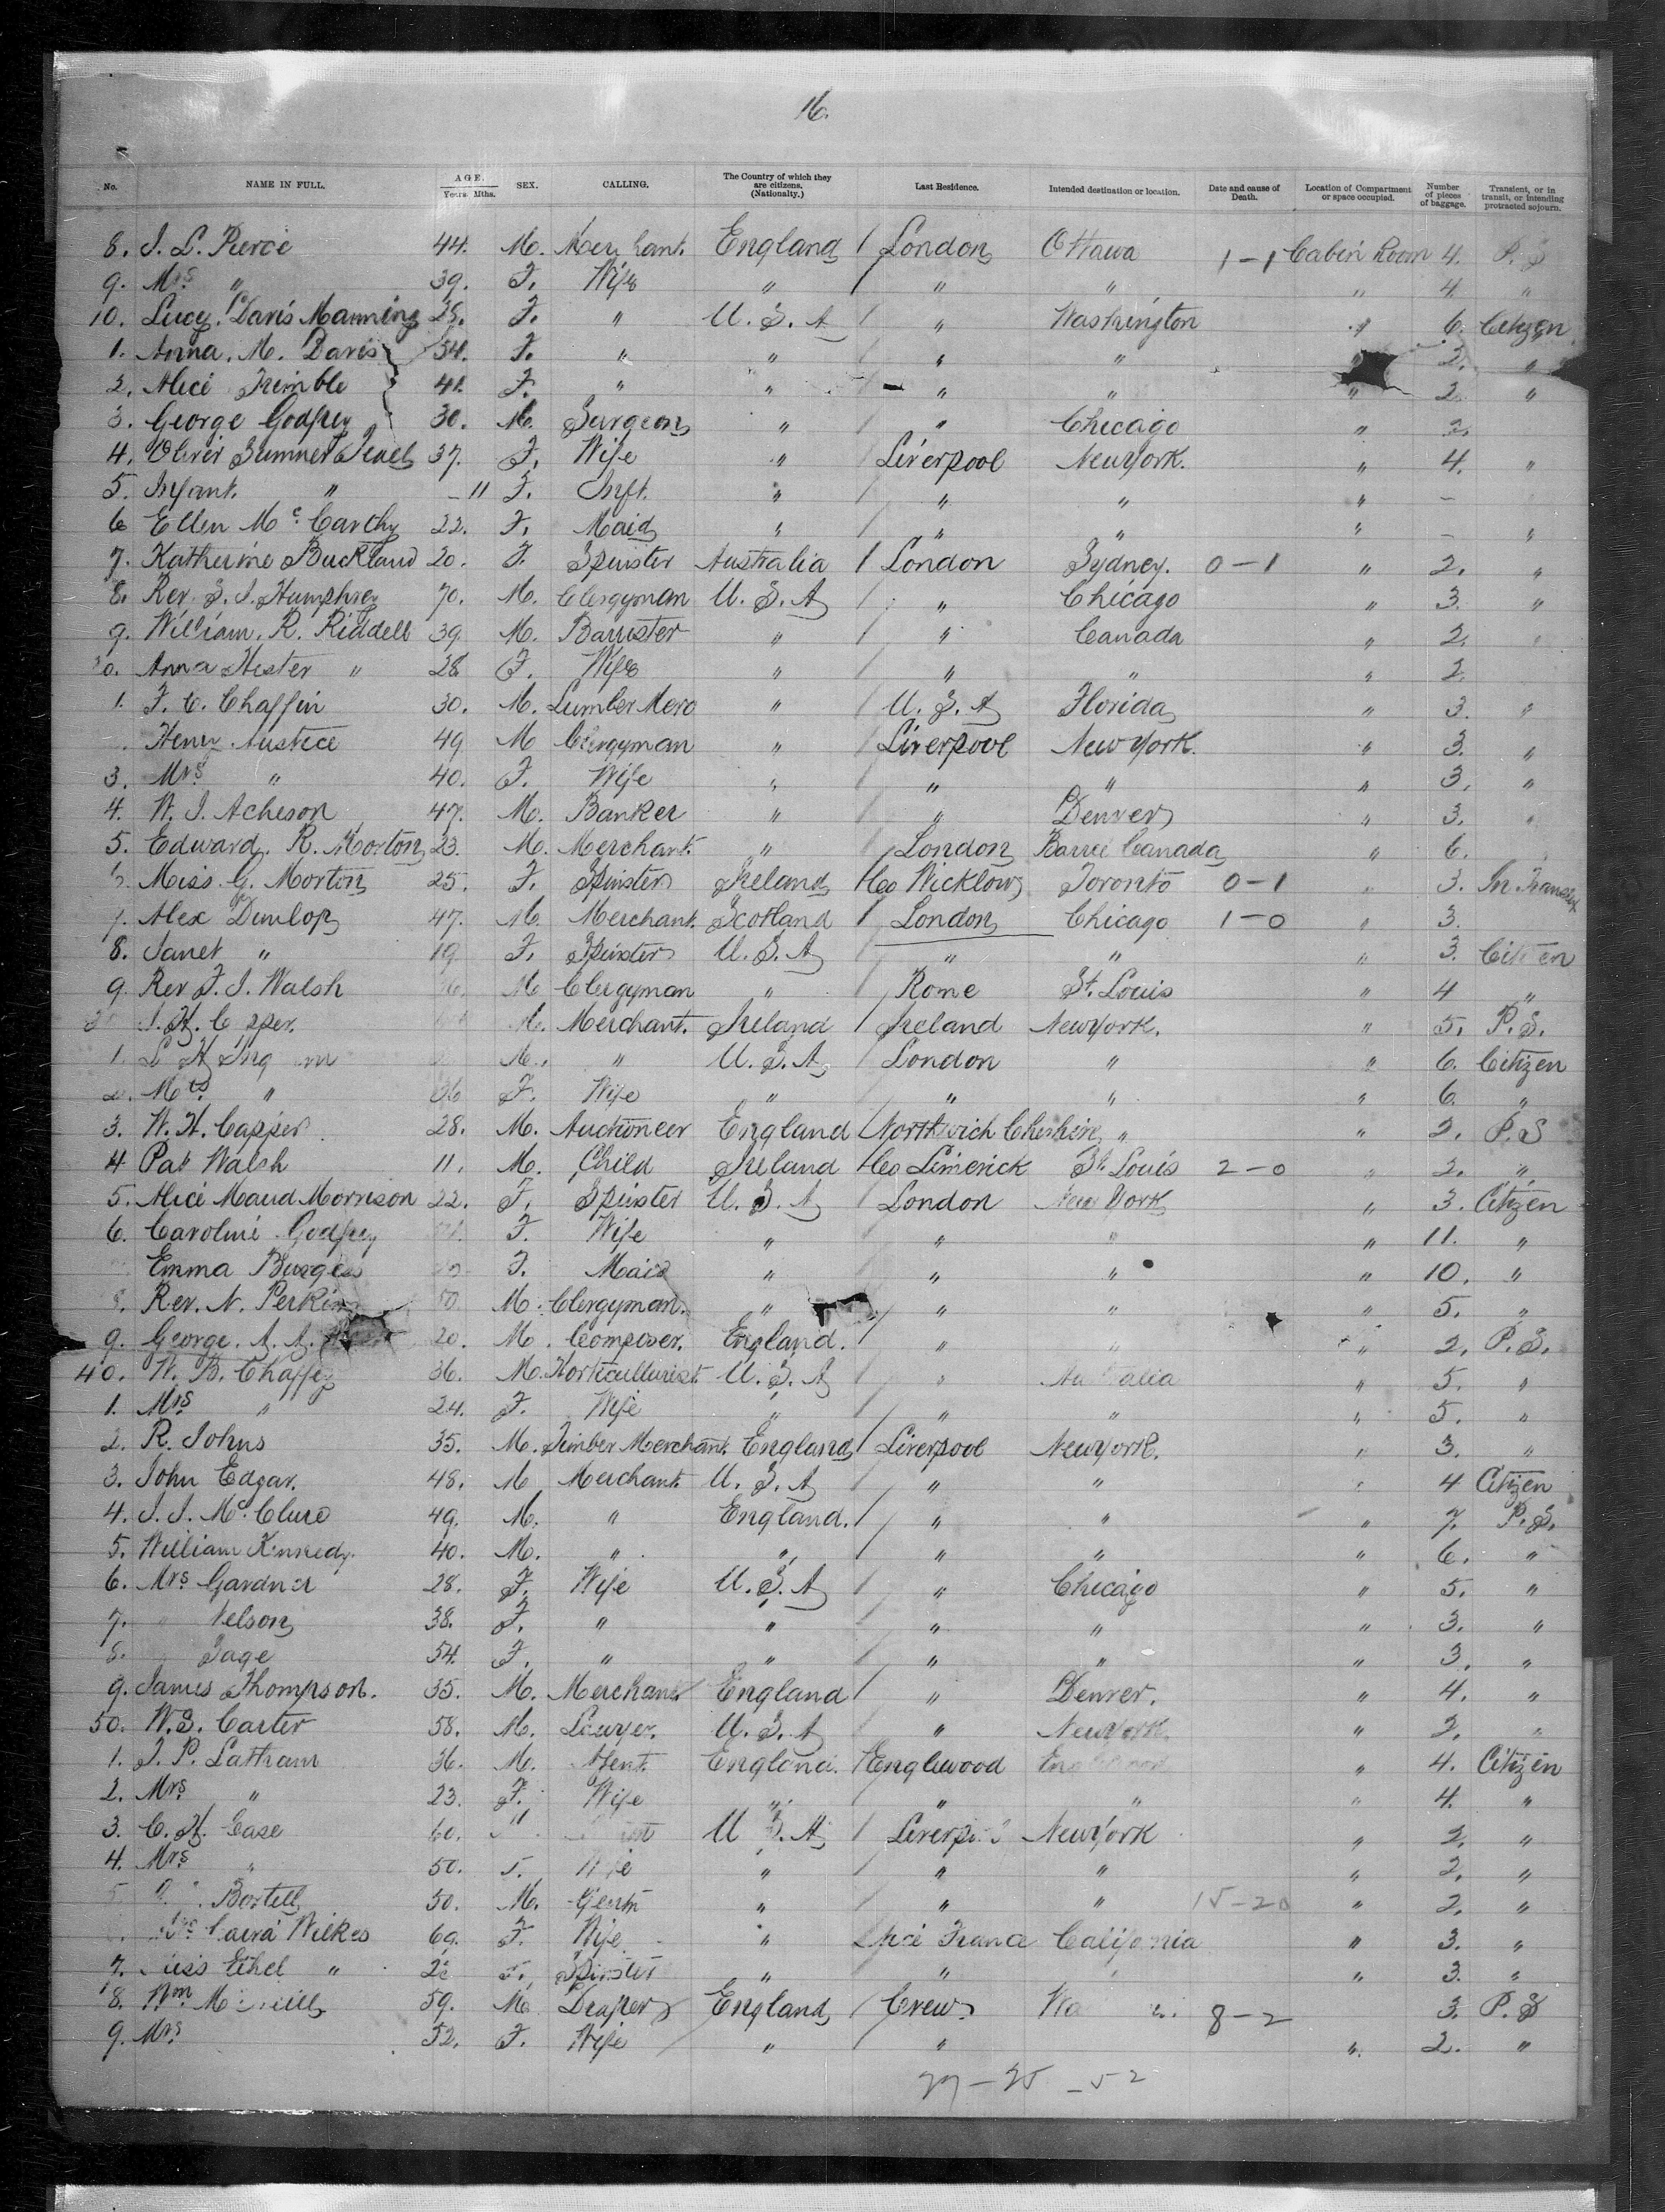 16.
No. NAME IN FULL. AGE. Years. Mths. SEX. CALLING. The Country of which they are citizens. (Nationality.) Last Residence. Intended destination or location. Date and cause of Death. Location of Compartment or space occupied. Number of pieces of baggage. Transient, or in transit, or intending protracted sojourn.
8. J. L. Pierce 44. M. Merchant. England / London Ottawa 1-1 Cabin Room 4. P.S
9. Mrs " 39. F. Wife " / " " " 4. "
10. Lucy Davis Manning F. " U.S.A / " Washington " 6. Citizen
1. Anna. M. Davis 34. F. " " / " " 2. "
2. Alice Trimble 41. F. " " / " " " 2. "
3. George Godfrey 30. M. Surgeon " / " Chicago " 2. "
4. Oliver Sumner 37. F. Wife " / Liverpool New York. " 4. "
5. Infant. " -11 F. Inft. " / " " " -
6 Ellen Mc Carthy 22. F. Maid " / " " " - "
7. Katherine Buckland 20. F. Spinster Australia / London Sydney. 0-1 " 2. "
8. Rev. S. J. Humphrey 70. M. Clergyman U.S.A / " Chicago " 3. "
9. William. R. Riddell 39 M. Barrister " / " Canada " 2. "
0. Anna Hester " 28 F. Wife " / " " " 2.
1. F. C. Chaffin 30. M. Lumber Merc " / U.S.A Florida " 3. "
Henry Austice 49 M Clergyman " / Liverpool New York. " 3. "
3. Mrs " 40. F. Wife " / " " " 3. "
4. W. J. Acheson 47. M. Banker " / " Denver " 3. "
5. Edward. R. Morton 23. M. Merchant. " / London Barrie Canada " 6.
Miss. G. Morton 25. F. Spinster Ireland / Co Wicklow Toronto 0-1 " 3. In Transit
7. Alex Dunlop 47. M. Merchant. Scotland / London Chicago 1-0 " 3.
8. Janet " 19 F. Spinster U.S.A " " " 3. Citizen
9. Rev F. J. Walsh M Clergyman " / Rome St. Louis " 4 "
M. Merchant. Ireland / Ireland New York. " 5. P.S.
1. M. " U.S.A / London " " 6. Citizen
Mrs " 36 F. Wife " / " " " 6. "
3. W. H. Capper 28. M. Auctioneer England / Northwich Cheshire " " 2. P.S
4 Pat Walsh 11. M. Child Ireland / Co Limerick St. Louis 2-0 " 2. "
5. Alice Maud Morrison 22. F. Spinster U.S.A / London New York " 3. Citizen
6. Caroline Godfrey F. Wife " / " " " 11. "
Emma Burgess F. Maid " / " " " 10. "
Rev. N. Perkins 50. M. Clergyman. " / " " " 5. "
9. George. A. A. 20. M. Composer. England. / " " " 2. P.S.
40. W. B. Chaffey 36. M. Horticulturist U.S.A / " Australia " 5. "
1. Mrs " 24. F. Wife " / " " " 5. "
2. R. Johns 35. M. Timber Merchant England / Liverpool New York. " 3. "
3. John Edgar. 48. M Merchant. U.S.A / " " " 4 Citizen
4. J. J. Mc Clure 49. M. " England. / " " " 7. P.S.
5. William Kennedy. 40. M. " " / " " " 6. "
6. Mrs Gardner 28. F. Wife U.S.A / " Chicago " 5. "
7. " Nelson 38. F. " " / " " " 3. "
8. " Sage 54. F. " " / " " " 3. "
9. James Thompson. 35. M. Merchant England / " Denver. " 4. "
50. W.S. Carter 58. M. Lawyer. U.S.A / " New York. " 2. "
1. J. P. Latham 36. M. Agent. England. / Englewood Englewood " 4. Citizen
2. Mrs " 23. F. Wife " / " " " 4. "
3. C. H. Case 60. U.S.A / Liverpool New York " 2. "
4. Mrs " 50. F. Wife " " " " 2. "
Bortell 50. M. Gentn " " " 15-20 " 2. "
Wilkes F. Wife " Nice France California " 3. "
7. Miss Ethel " F. Spinster " " " 3. "
8. Wm. 59. M. Draper England / Crewe 8-2 3. P.S
9. Mrs 52. F. Wife " " " 2. "
27-25-52